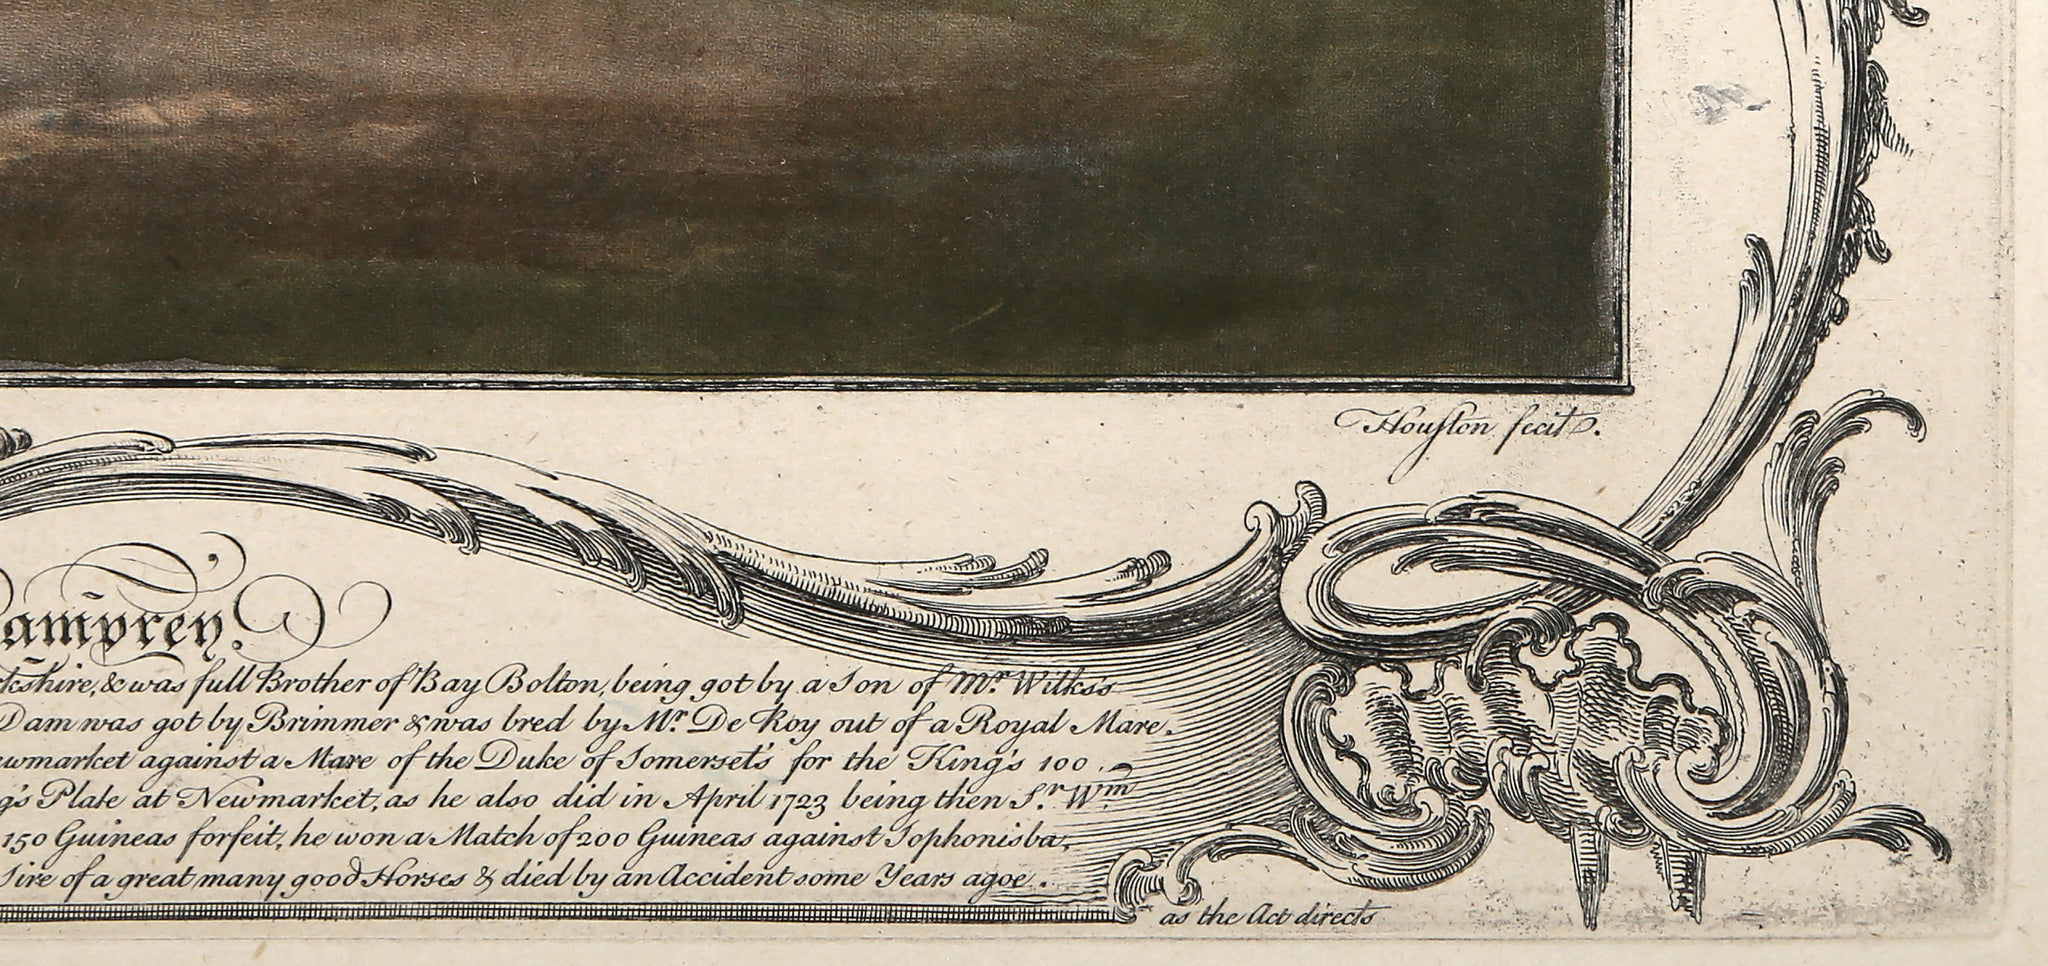 Houston fecit.
amprey.
kshire, & was full Brother of Bay Bolton, being got by a Son of Mr. Wilks's
Dam was got by Brimmer & was bred by Mr. De Roy out of a Royal Mare.
wmarket against a Mare of the Duke of Somerset's for the King's 100
g's Plate at Newmarket, as he also did in April 1723 being then Sr. Wm
150 Guineas forfeit, he won a Match of 200 Guineas against Sophonisba,
Sire of a great many good Horses & died by an Accident some Years agoe.
as the Act directs